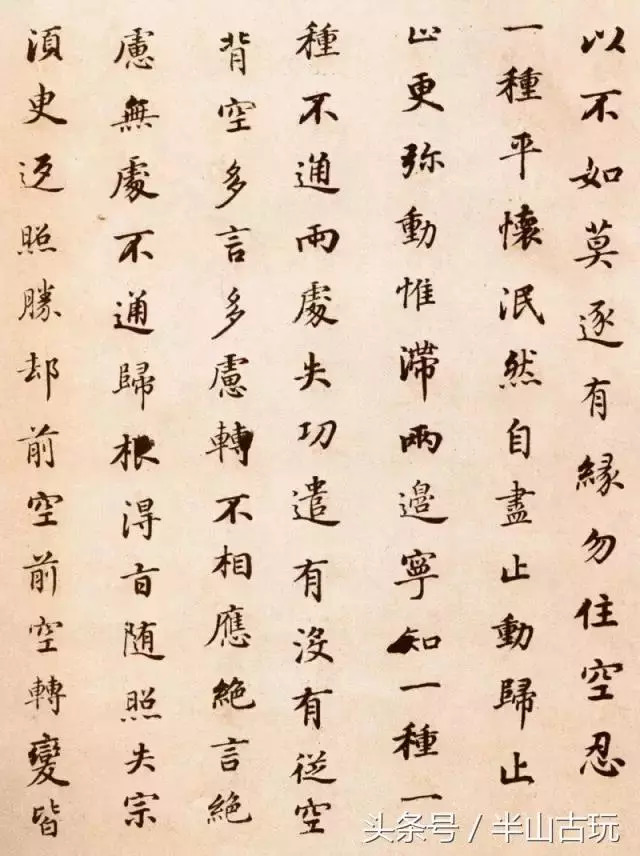 以不如莫逐有緣勿住空忍
一種平懷泯然自盡止動歸止
止更弥動惟滯兩邊寧知一種一
種不通兩處失功遣有沒有從空
背空多言多慮轉不相應絕言絕
慮無處不通歸根得旨随照失宗
須臾返照勝却前空前空轉變皆
头条号 / 半山古玩